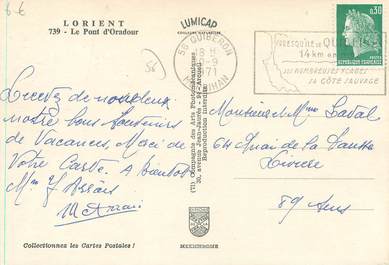 6 €
LORIENT
739 - Le Pont d'Oradour
LUMICAP
56 QUIBERON
18 H
-9
1971
MORBIHAN
PRESQU'ILE DE QUIBERON
14 km en
SES NOMBREUSES PLAGES
SA CÔTE SAUVAGE
0,30
56
Recevez de nous deux
notre bons souvenirs
de Vacances, Merci de
Votre Carte. A bientôt
Mme Y. Arrais
(71) Compagnie des Arts Photomécaniques
30, avenue Jean-Jaurès - 94-Arcueil
Reproduction interdite
Monsieur et Mme Laval
64 Quai de la
89
Collectionnez les Cartes Postales !
MEXICHROME